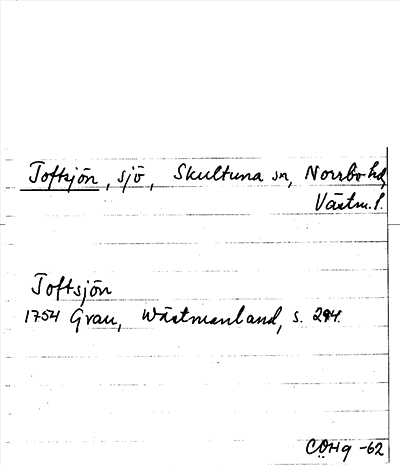 Toftsjön, sjö, Skultuna sn, Norrbo hd,
Västm. l.
Toftsjön
1754 Grau, Wästmanland, s. 294.
CÖHg -62